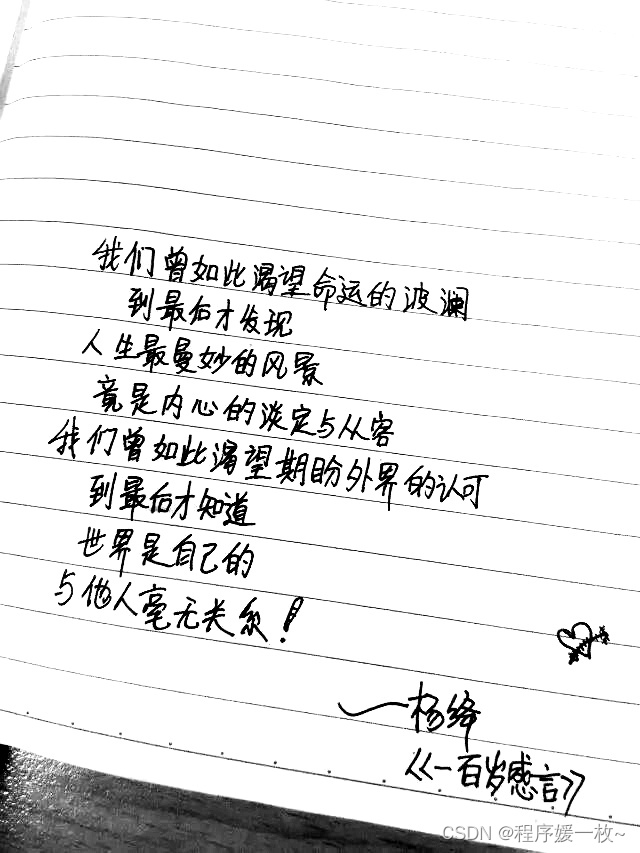 我们曾如此渴望命运的波澜
到最后才发现
人生最曼妙的风景
竟是内心的淡定与从容
我们曾如此渴望期盼外界的认可
到最后才知道
世界是自己的
与他人毫无关系！
——杨绛
《一百岁感言》
CSDN @程序媛一枚~